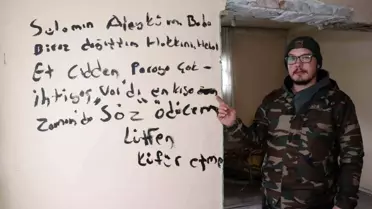 Selamın Aleyküm Baba
Biraz dağıttım Hakkını Helal
Et Cidden, Paraya çok
ihtiyaç Vardı en kısa
Zamanda Söz ödücem
Lütfen
küfür etme